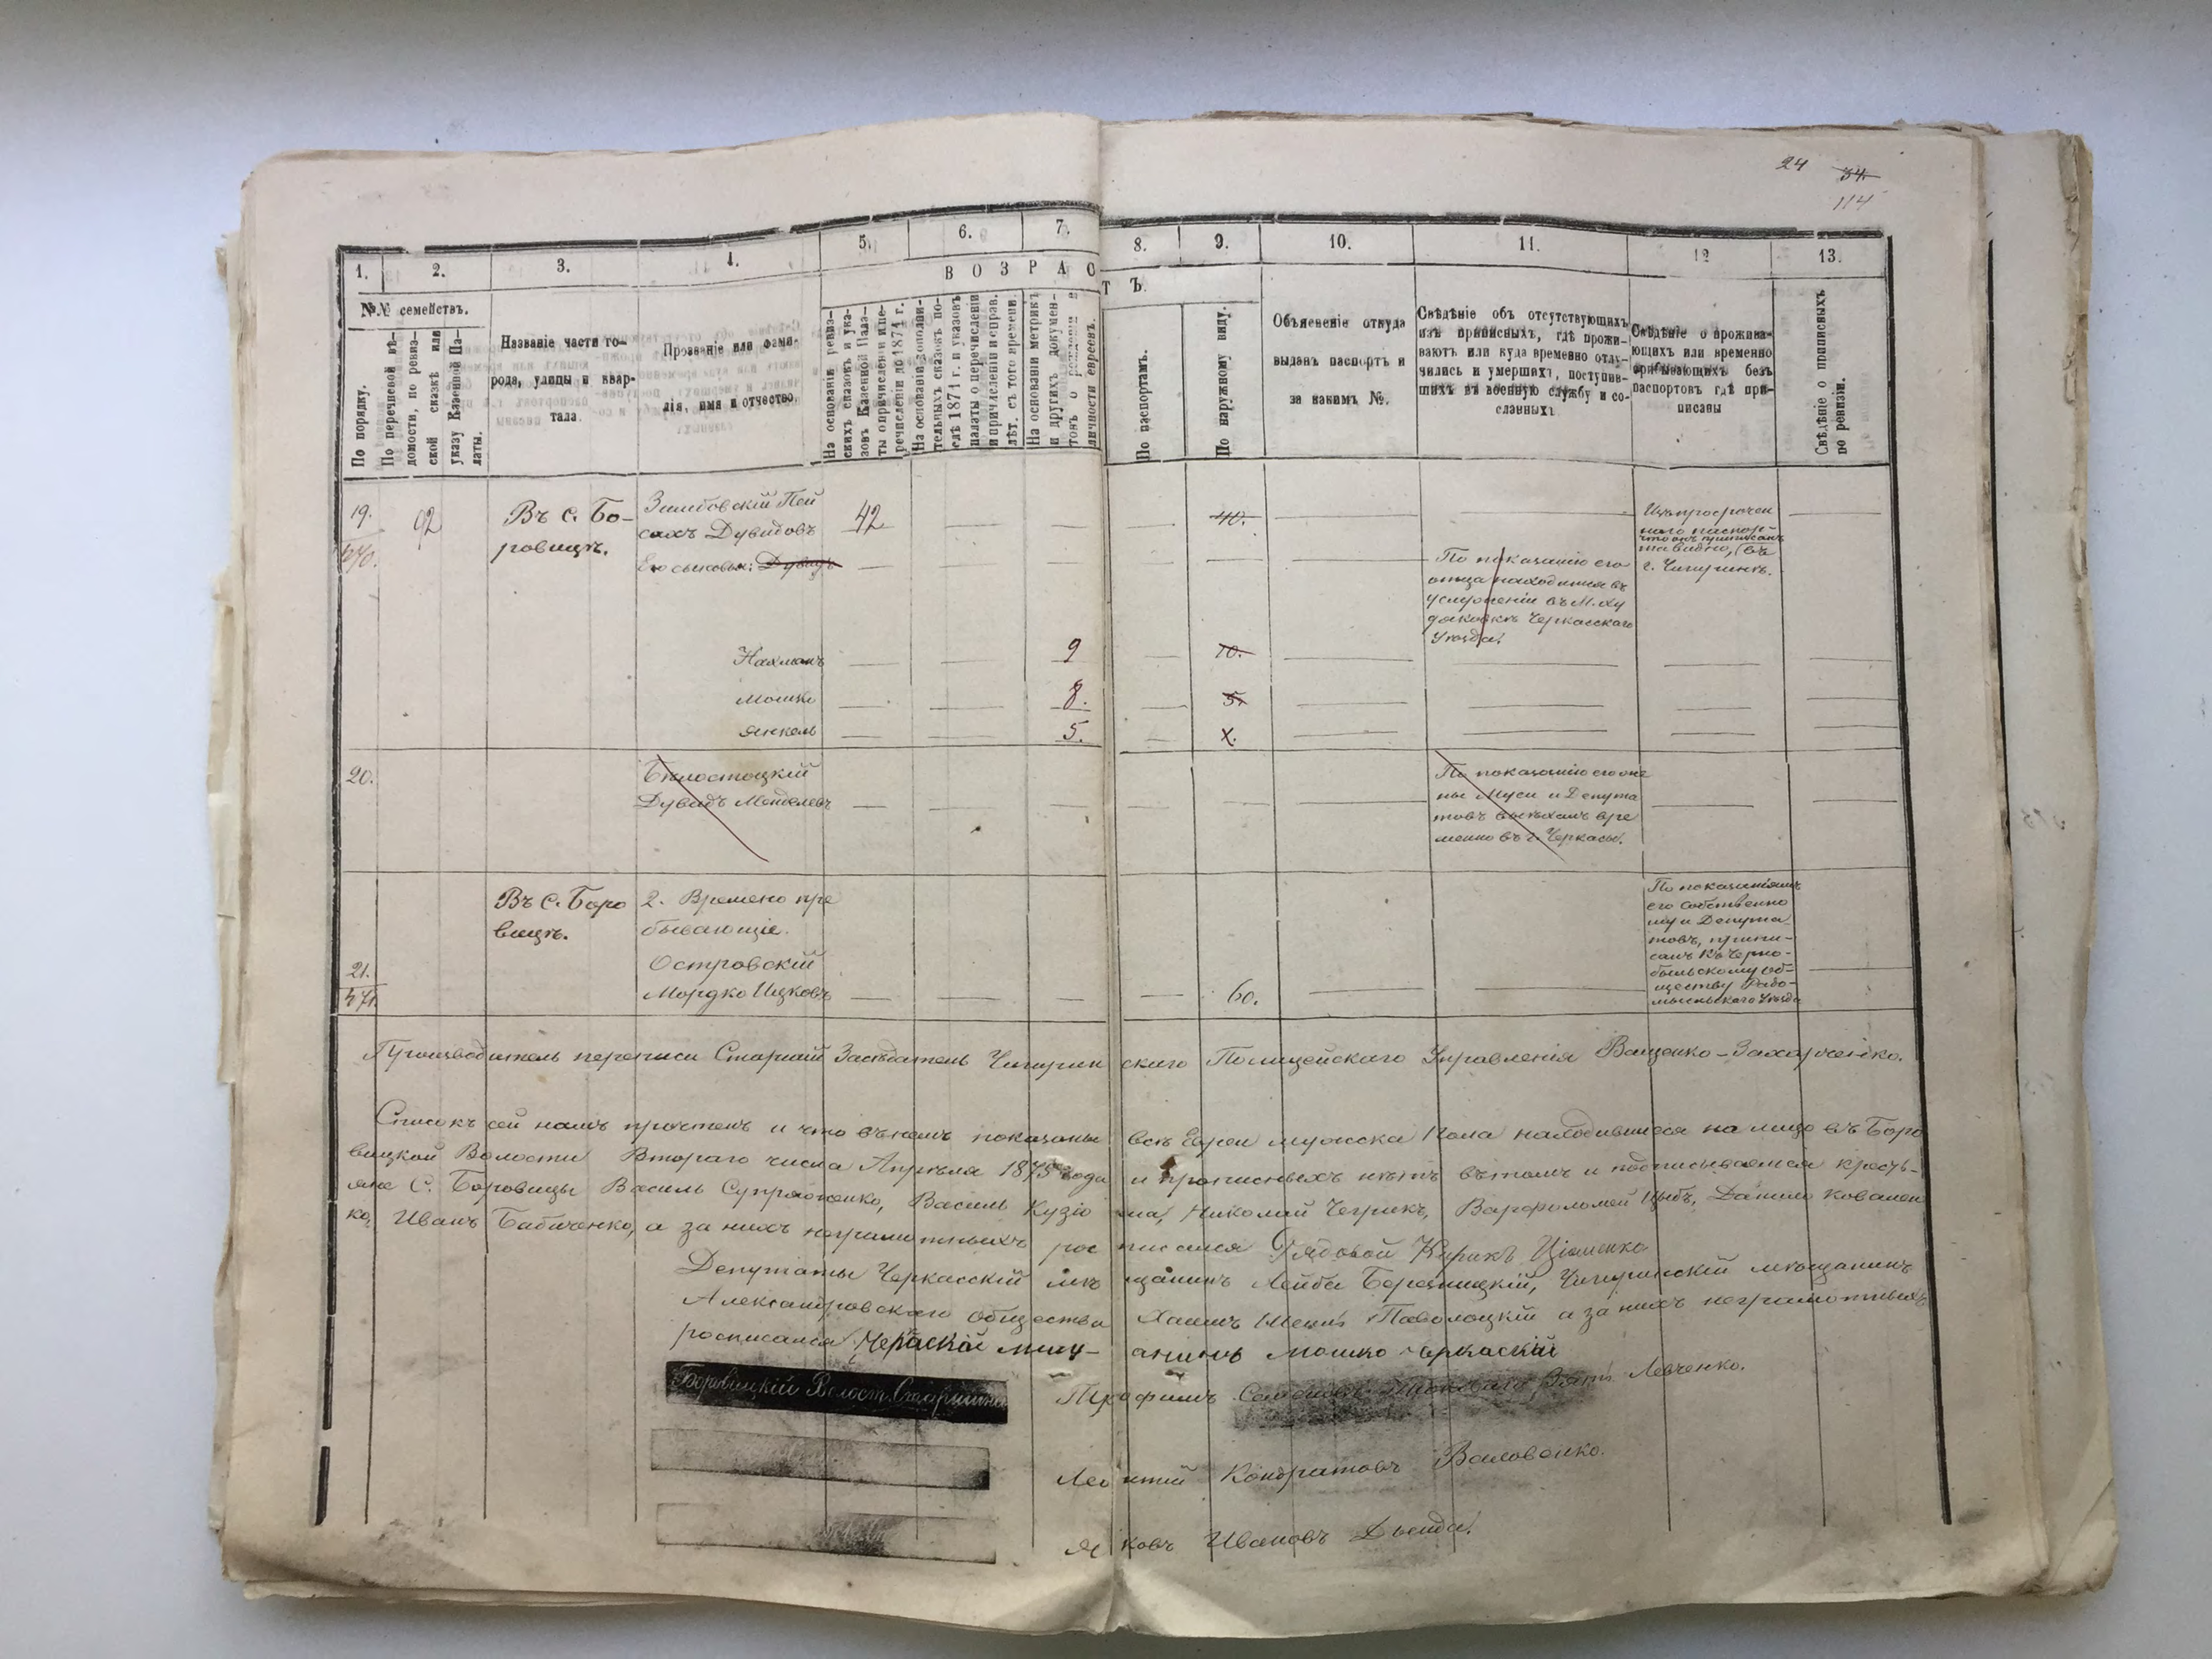 24 34.
114
1. 2. 3. 4. 5. 6. 7. 8. 9. 10. 11. 12 13.
ВОЗРАСТЪ.
№№ семействъ.
По порядку.
По перечневой вѣ-
домости, по ревиз-
ской сказкѣ или
указу Казенной Па-
латы.
Названіе части го-
рода, улицы и квар-
тала.
Прозваніе или фами-
лія, имя и отчество.
На основаніи ревиз-
скихъ сказокъ и ука-
зовъ Казенной Пала-
ты о причисленіи и пе-
речисленіи до 1874 г.
На основаніи дополни-
тельныхъ сказокъ по-
слѣ 1871 г. и указовъ
палаты о перечисленіи
и причисленіи и справ.
лѣт. съ того времени.
На основаніи метрикъ
и другихъ докумен-
товъ о рожденіи и
личности евреевъ.
По паспортамъ.
По наружному виду.
Объясненіе откуда
выданъ паспортъ и
за какимъ №.
Свѣдѣніе объ отсутствующихъ
изъ приписныхъ, гдѣ прожи-
ваютъ или куда временно отлу-
чились и умершихъ, поступив-
шихъ въ военную службу и со-
сланныхъ
Свѣдѣніе о прожива-
ющихъ или временно
пребывающихъ безъ
паспортовъ гдѣ при-
писаны
Свѣдѣніе о приписныхъ
по ревизіи.
19. 92 Въ С. Бо-
ровицѣ.
Зимбовскій Пей
сахъ Дувидовъ 42 40.
Изъ просрочен
наго паспор-
та видно, что онъ приписанъ въ
г. Чигиринѣ.
Его сыновья: Дувидъ
По показанію его
отца находится въ
услуженіи въ М. Ху
дяковкѣ Черкасскаго
Уѣзда.
Нахманъ 9 10.
Мошко 8. 5.
Янкель 5. X.
20. Бѣлостоцкій
Дувидъ Менделевъ
По показанію его же
ны Муси и Депута
товъ выѣхалъ вре
менно въ г. Черкасы.
Въ С. Боро
вицѣ.
2. Времено пре
бывающіе.
21. Островскій
Мордко Ицковъ 60.
По показаніямъ
его собственно
му и Депута
товъ, припи-
санъ къ Черно-
быльскому об-
ществу Радо-
мысльскаго Уѣзда
Производитель переписи Старшій Засѣдатель Чигиринскаго Полицейскаго Управленія Ващенко-Захарченко.
Списокъ сей намъ прочтенъ и что въ немъ показаны всѣ Евреи мужска пола находившіеся на лицо въ Боро
вицкой Волости Втораго числа Апрѣля 1875 года и прописныхъ нѣтъ въ томъ и подписываемся кресть-
яне С. Боровицы Василь Супруненко, Василь Кузіо Николай Чегрикъ, Варфоломей Цыбъ, Данило Ковален
ко, Иванъ Бабиченко, а за нихъ неграмотныхъ росписался Рядовой Кирикъ
Депутаты Черкасскій мѣщанинъ Лейба Чигиринскій мѣщанинъ
Александровскаго общества Хаимъ Паволоцкій а за нихъ неграмотныхъ
росписался Мошко Черкаскій
Боровицкій Волост. Старшина Левченко.
Леонтій Кондратовъ
Яковъ Ивановъ